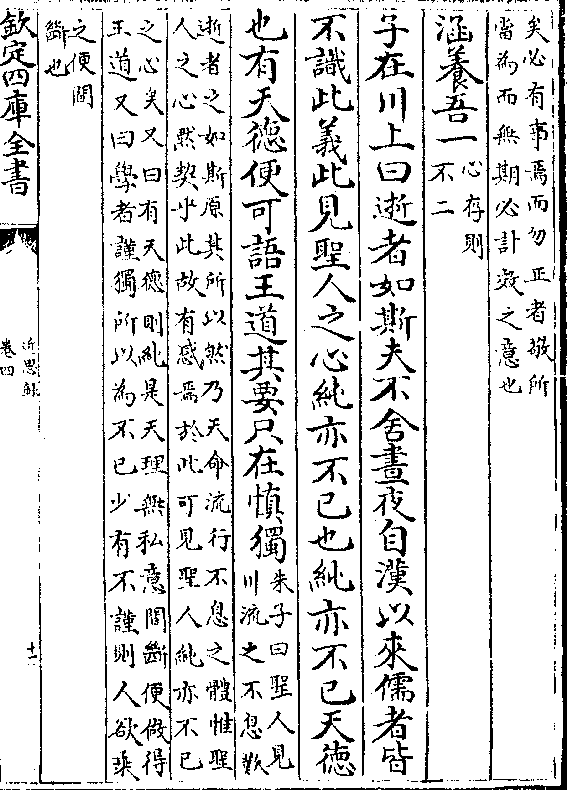 矣必有事焉而勿正者敬所
當為而無期必計效之意也
涵養吾一心存則
不二
子在川上曰逝者如斯夫不舍晝夜自漢以來儒者皆
不識此義此見聖人之心純亦不已也純亦不已天德
也有天德便可語王道其要只在慎獨朱子曰聖人見
川流之不息歎
逝者之如斯原其所以然乃天命流行不息之體惟聖
人之心黙契乎此故有感焉於此可見聖人純亦不已
之心矣又曰有天德則純是天理無私意間斷便做得
王道又曰學者謹獨所以為不已少有不謹則人欲乗
之便間
斷也
欽定四庫全書
近思録
卷四
十一